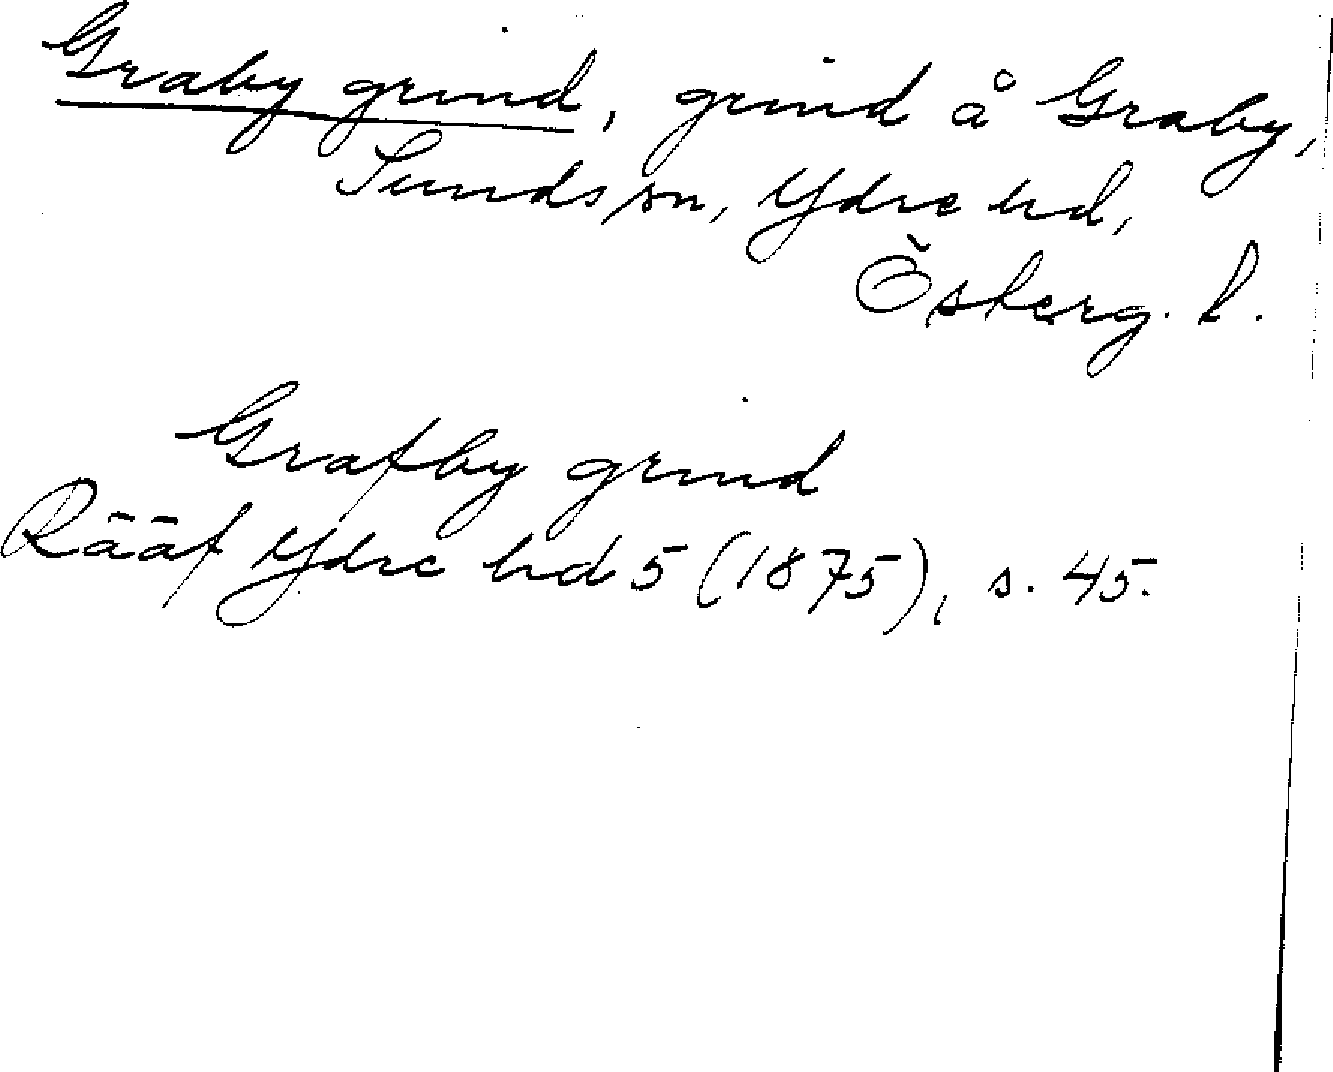 Graby grind, grind å Graby,
Sunds sn, Ydre hd,
Österg. l.
Grafby grind
Rääf Ydre hd 5 (1875), s. 45.